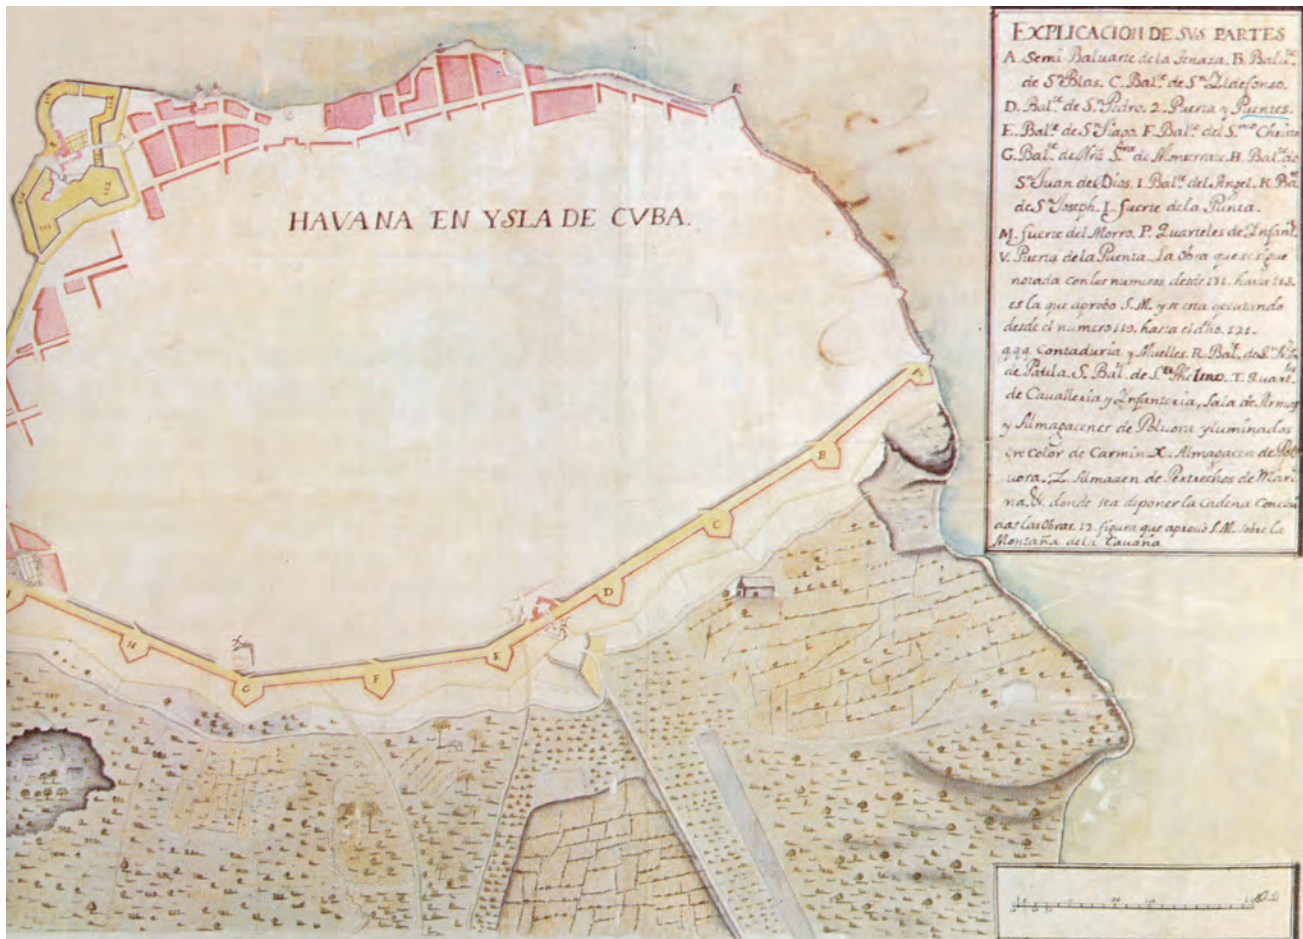 HAVANA EN YSLA DE CVBA.
EXPLICACION DE SVS PARTES
A. Semi Baluarte de la Tenaza. B. Bal.te
de Sn Blas. C. Bal.te de Sn Yldefonso.
D. Bal.te de Sn Pedro. 2. Puerta y Puentes.
E. Bal.te de Sn Tiago. F. Bal.te del S.mo Christo
G. Bal.te de Nrã Srã de Monserrate. H. Bal.te de
Sn Juan de Dios. I. Bal.te del Angel. K. Bal.te
de Sn Joseph. L. fuerte de la Punta.
M. fuerte del Morro. P. Quarteles de Infant.
V. Puerta de la Puenta. La obra que se sigue
notada con los numeros desde 111. hasta
es la que aprobo S.M. y se esta gecutando
desde el numero 119. hasta el dho. 121.
q.q.q. Contaduria y Muelles. R. Bal.te de Sn
de Paula. S. Bal.te de S.n Thelmo. T. Quart.
de Cavalleria y Infanteria, Sala de Armas
y Almagacenes de Polvora yluminados
en color de Carmin. X. Almagacen de Pol
vora. Z. Almazen de Pertrechos de Mari
na. &. donde sea diponer la Cadena
las Obras. 12. figura que aprovó S.M. sobre la
Montaña dela Cavaña
A
B
C
D
E
F
G
H
I